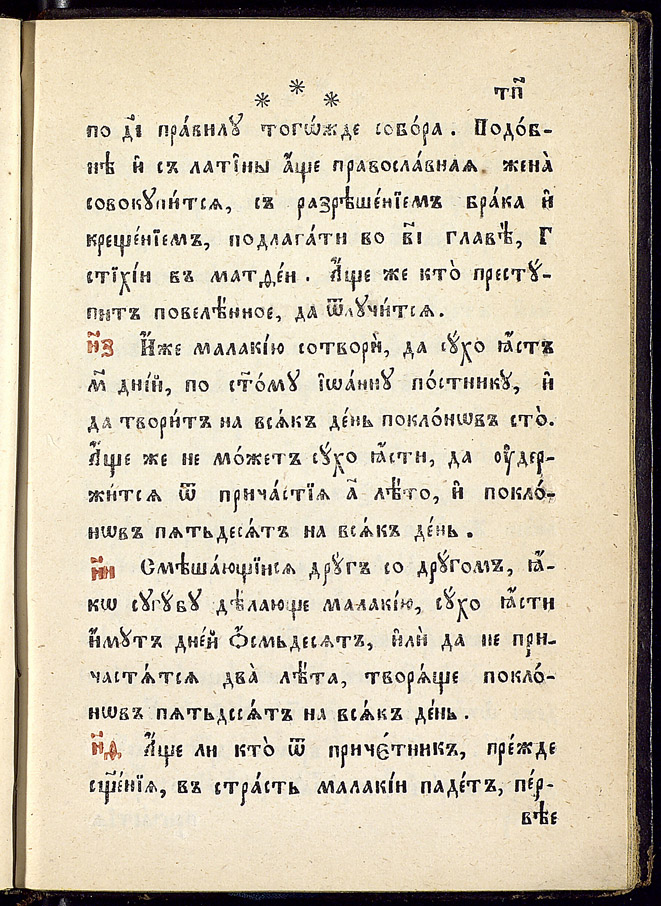 * * * тп҃
по д҃і пра́вилꙋ тогѡ́жде собо́ра. Подо́б-
нѣ и҆ съ латі̑ны а҆́ще правосла́вная жена̀
совокꙋпи́тся, съ разрѣше́нїемъ бра́ка и҆
креще́нїемъ, подлага́ти во в҃і главѣ̀, г҃
сті̑хі́и въ матѳе́и. А҆́ще же кто̀ престꙋ́-
питъ повелѣ́нное, да ѿлꙋчи́тся.
н҃з И҆́же малакі́ю сотвори̑, да сꙋ́хо ꙗ҆́стъ
м҃ дні́й, по ст҃о́мꙋ і҆ѡа́ннꙋ по́стникꙋ, и҆
да твори́тъ на вся́къ де́нь покло́нѡвъ сто̀.
А҆́ще же не мо́жетъ сꙋ́хо ꙗ҆́сти, да ᲂу҆дер-
жи́тся ѿ прича́стїя а҃ лѣ́то, и҆ покло́-
нѡвъ пятьдеся́тъ на вся́къ де́нь.
н҃и Смѣша́ющїися дрꙋ́гъ со дрꙋ́гомъ, ꙗ҆́-
кѡ сꙋгꙋ́бꙋ дѣ́лающе малакі́ю, сꙋ́хо ꙗ҆́сти
и҆́мꙋтъ дне́й ѻ҆́смьдеся́тъ, и҆лѝ да не при-
частя́тся два̀ лѣ́та, творя́ще покло́-
нѡвъ пятьдеся́тъ на вся́къ де́нь.
н҃ѳ А҆́ще ли кто̀ ѿ приче́тникъ, пре́жде
сщ҃е́нїя, въ стра́сть малакі́и паде́тъ, пе́р-
вѣе